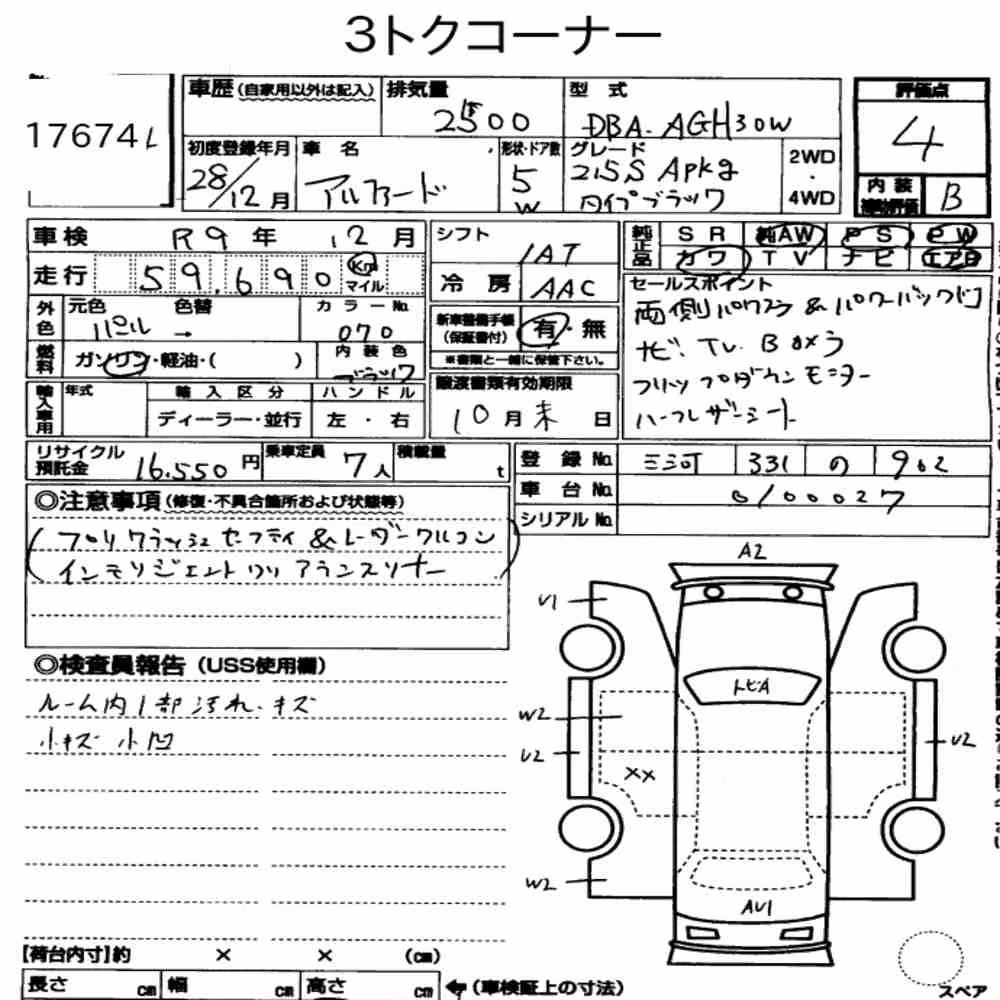 3トクコーナー
17674
車歴 (自家用以外は記入)
排気量
2500
型式
DBA-AGH30W
評価点
4
初度登録年月
28/12月
車名
アルファード
形状・ドア数
5
W
グレード
2.5S Apkg
タイプブラック
2WD
・
4WD
内装
補助評価
B
車検 R9年 12月
走行 59.690 Km マイル
シフト
IAT
冷房
AAC
純正品
SR 純AW PS PW
カワ TV ナビ エアB
外色
元色 色替
パール →
カラーNo.
070
燃料
ガソリン・軽油・( )
内装色
ブラック
新車整備手帳
(保証書付)
有・無
※書類と一緒に保管下さい。
セールスポイント
両側パワスラ & パワーバックドア
ナビ. TV. Bカメラ
フリップダウンモニター
ハーフレザーシート
輸入車用
年式
輸入区分
ディーラー・並行
ハンドル
左・右
譲渡書類有効期限
10月末日
リサイクル
預託金
16.550円
乗車定員
7人
積載量
t
登録No.
三河 331 の 902
車台No.
0100027
シリアルNo.
◎注意事項 (修復・不具合箇所および状態等)
(プリクラッシュセーフティ&レーダークルコン
インテリジェントクリアランスソナー)
◎検査員報告 (USS使用欄)
ルーム内1部汚れ.キズ
小キズ 小凹
A2
U1
トビA
W2
U2
XX
U2
W2
AU1
【荷台内寸】約 × × (cm)
長さ cm 幅 cm 高さ cm
(車検証上の寸法)
スペア